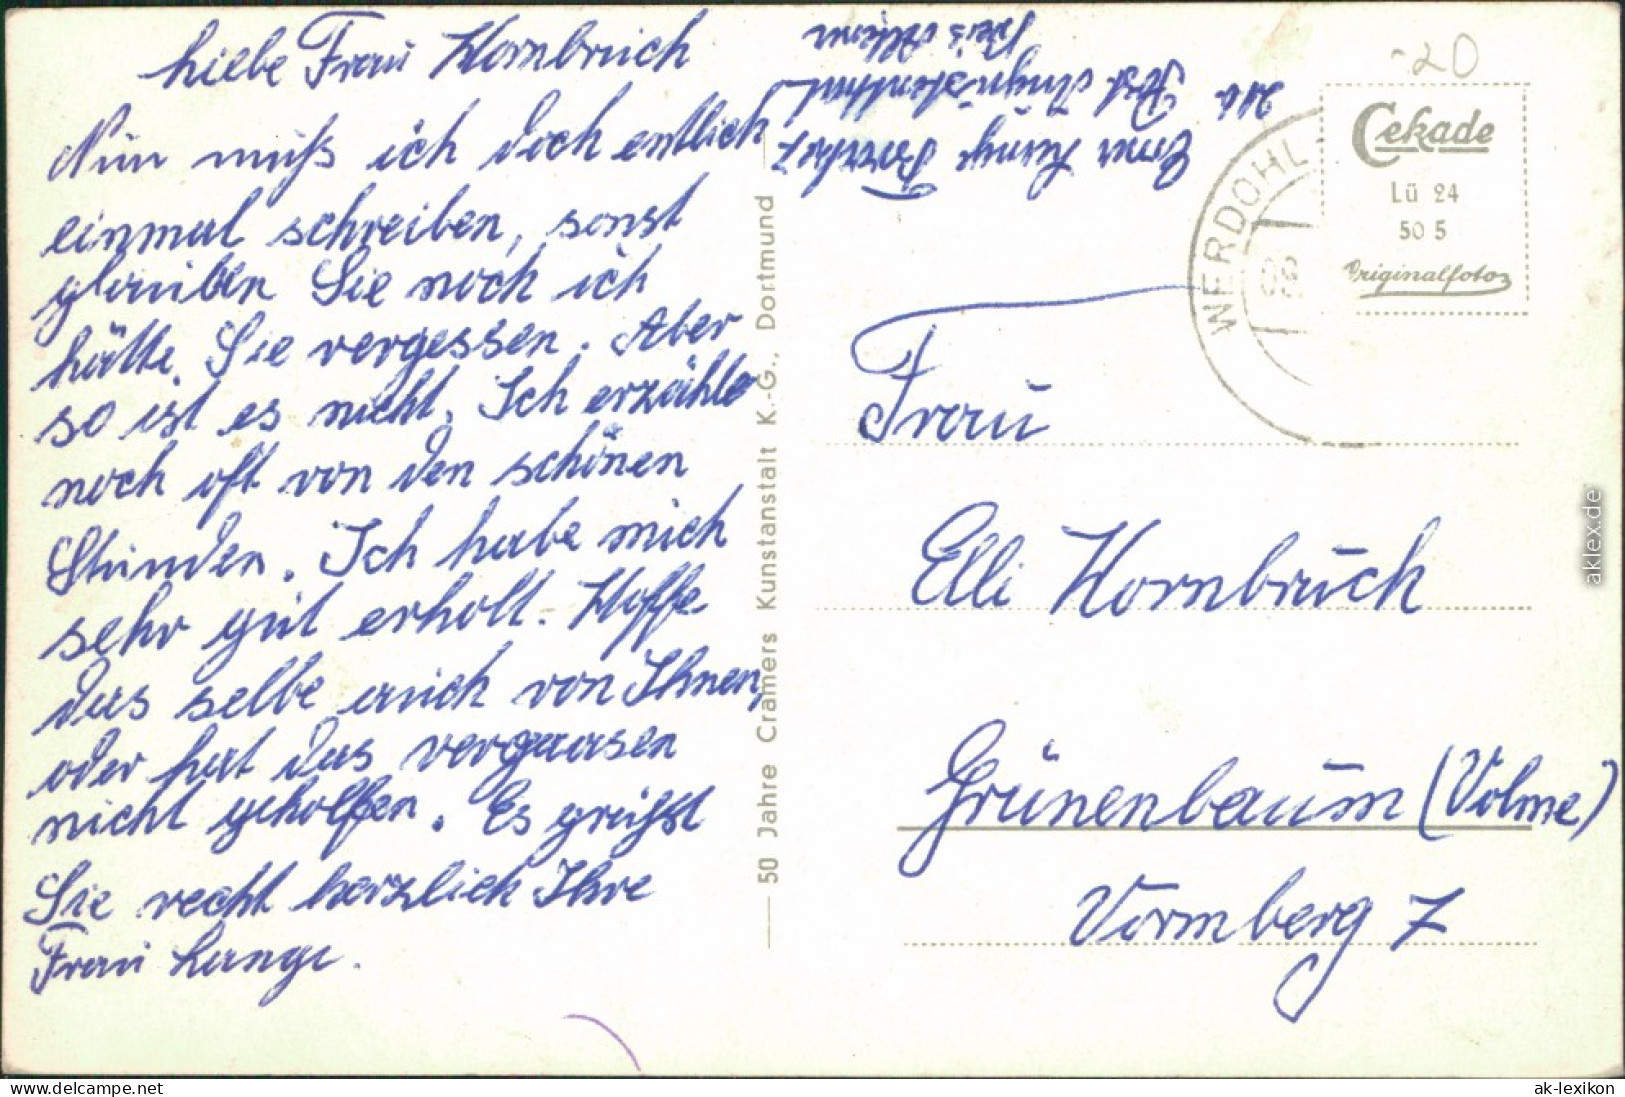 Liebe Frau Hornbruch
Nun muß ich doch entlich
einmal schreiben, sonst
glauben Sie noch ich
hätte Sie vergessen. Aber
so ist es nicht. Ich erzähle
noch oft von den schönen
Stunden. Ich habe mich
sehr gut erholt. Hoffe
das selbe auch von Ihnen,
oder hat das vergaasen
nicht geholfen. Es grüßt
Sie recht herzlich Ihre
Frau Lange.
Lange
Post
Kreis
50 Jahre Cramers Kunstanstalt K.-G., Dortmund
-20
Cekade
Lü 24
50 5
Originalfoto
WERDOHL
Frau
Elli Hornbruch
Grünenbaum (Volme)
Vormberg 7
aklex.de
www.delcampe.net
ak-lexikon